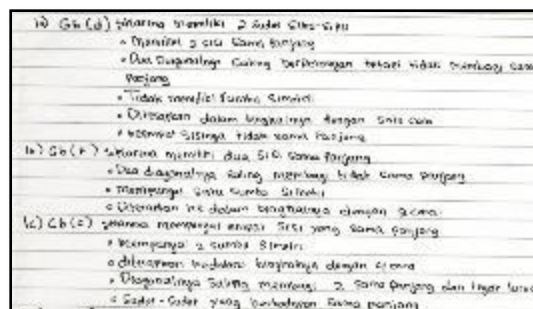 Gb (d) karena memiliki 2 Sudut Siku-Siku
• Memiliki 2 sisi Sama Panjang
• Dua Diagonalnya Saling berpotongan tetapi tidak membagi sama
Panjang
• Tidak memiliki Sumbu Simetri
• dalam bingkainya dengan Satu cara
• keempat Sisinya tidak sama Panjang
Gb ( ) karena memiliki dua Sisi Sama Panjang
• Dua diagonalnya Saling membagi tidak Sama Panjang
• Mempunyai Satu Sumbu Simetri
• ke dalam bingkainya dengan 2 cara
(c) Gb (c) karena mempunyai empat Sisi yang Sama Panjang
• 2 sumbu Simetri
• bingkainya dengan cara
• Diagonalnya Saling membagi 2 Sama Panjang dan tegak lurus
• Sudut-Sudut yang berhadapan Sama panjang